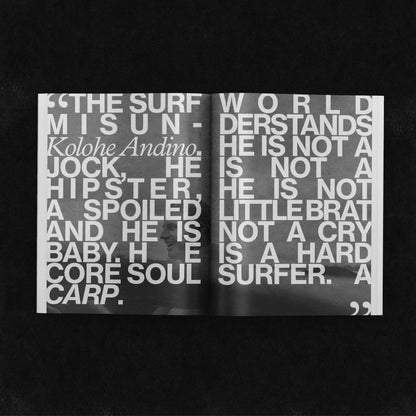 “THE SURF WORLD
MISUN- DERSTANDS
Kolohe Andino. HE IS NOT A
JOCK, HE IS NOT A
HIPSTER, HE IS NOT
A SPOILED LITTLE BRAT
AND HE IS NOT A CRY
BABY. HE IS A HARD
CORE SOUL SURFER. A
CARP. ”